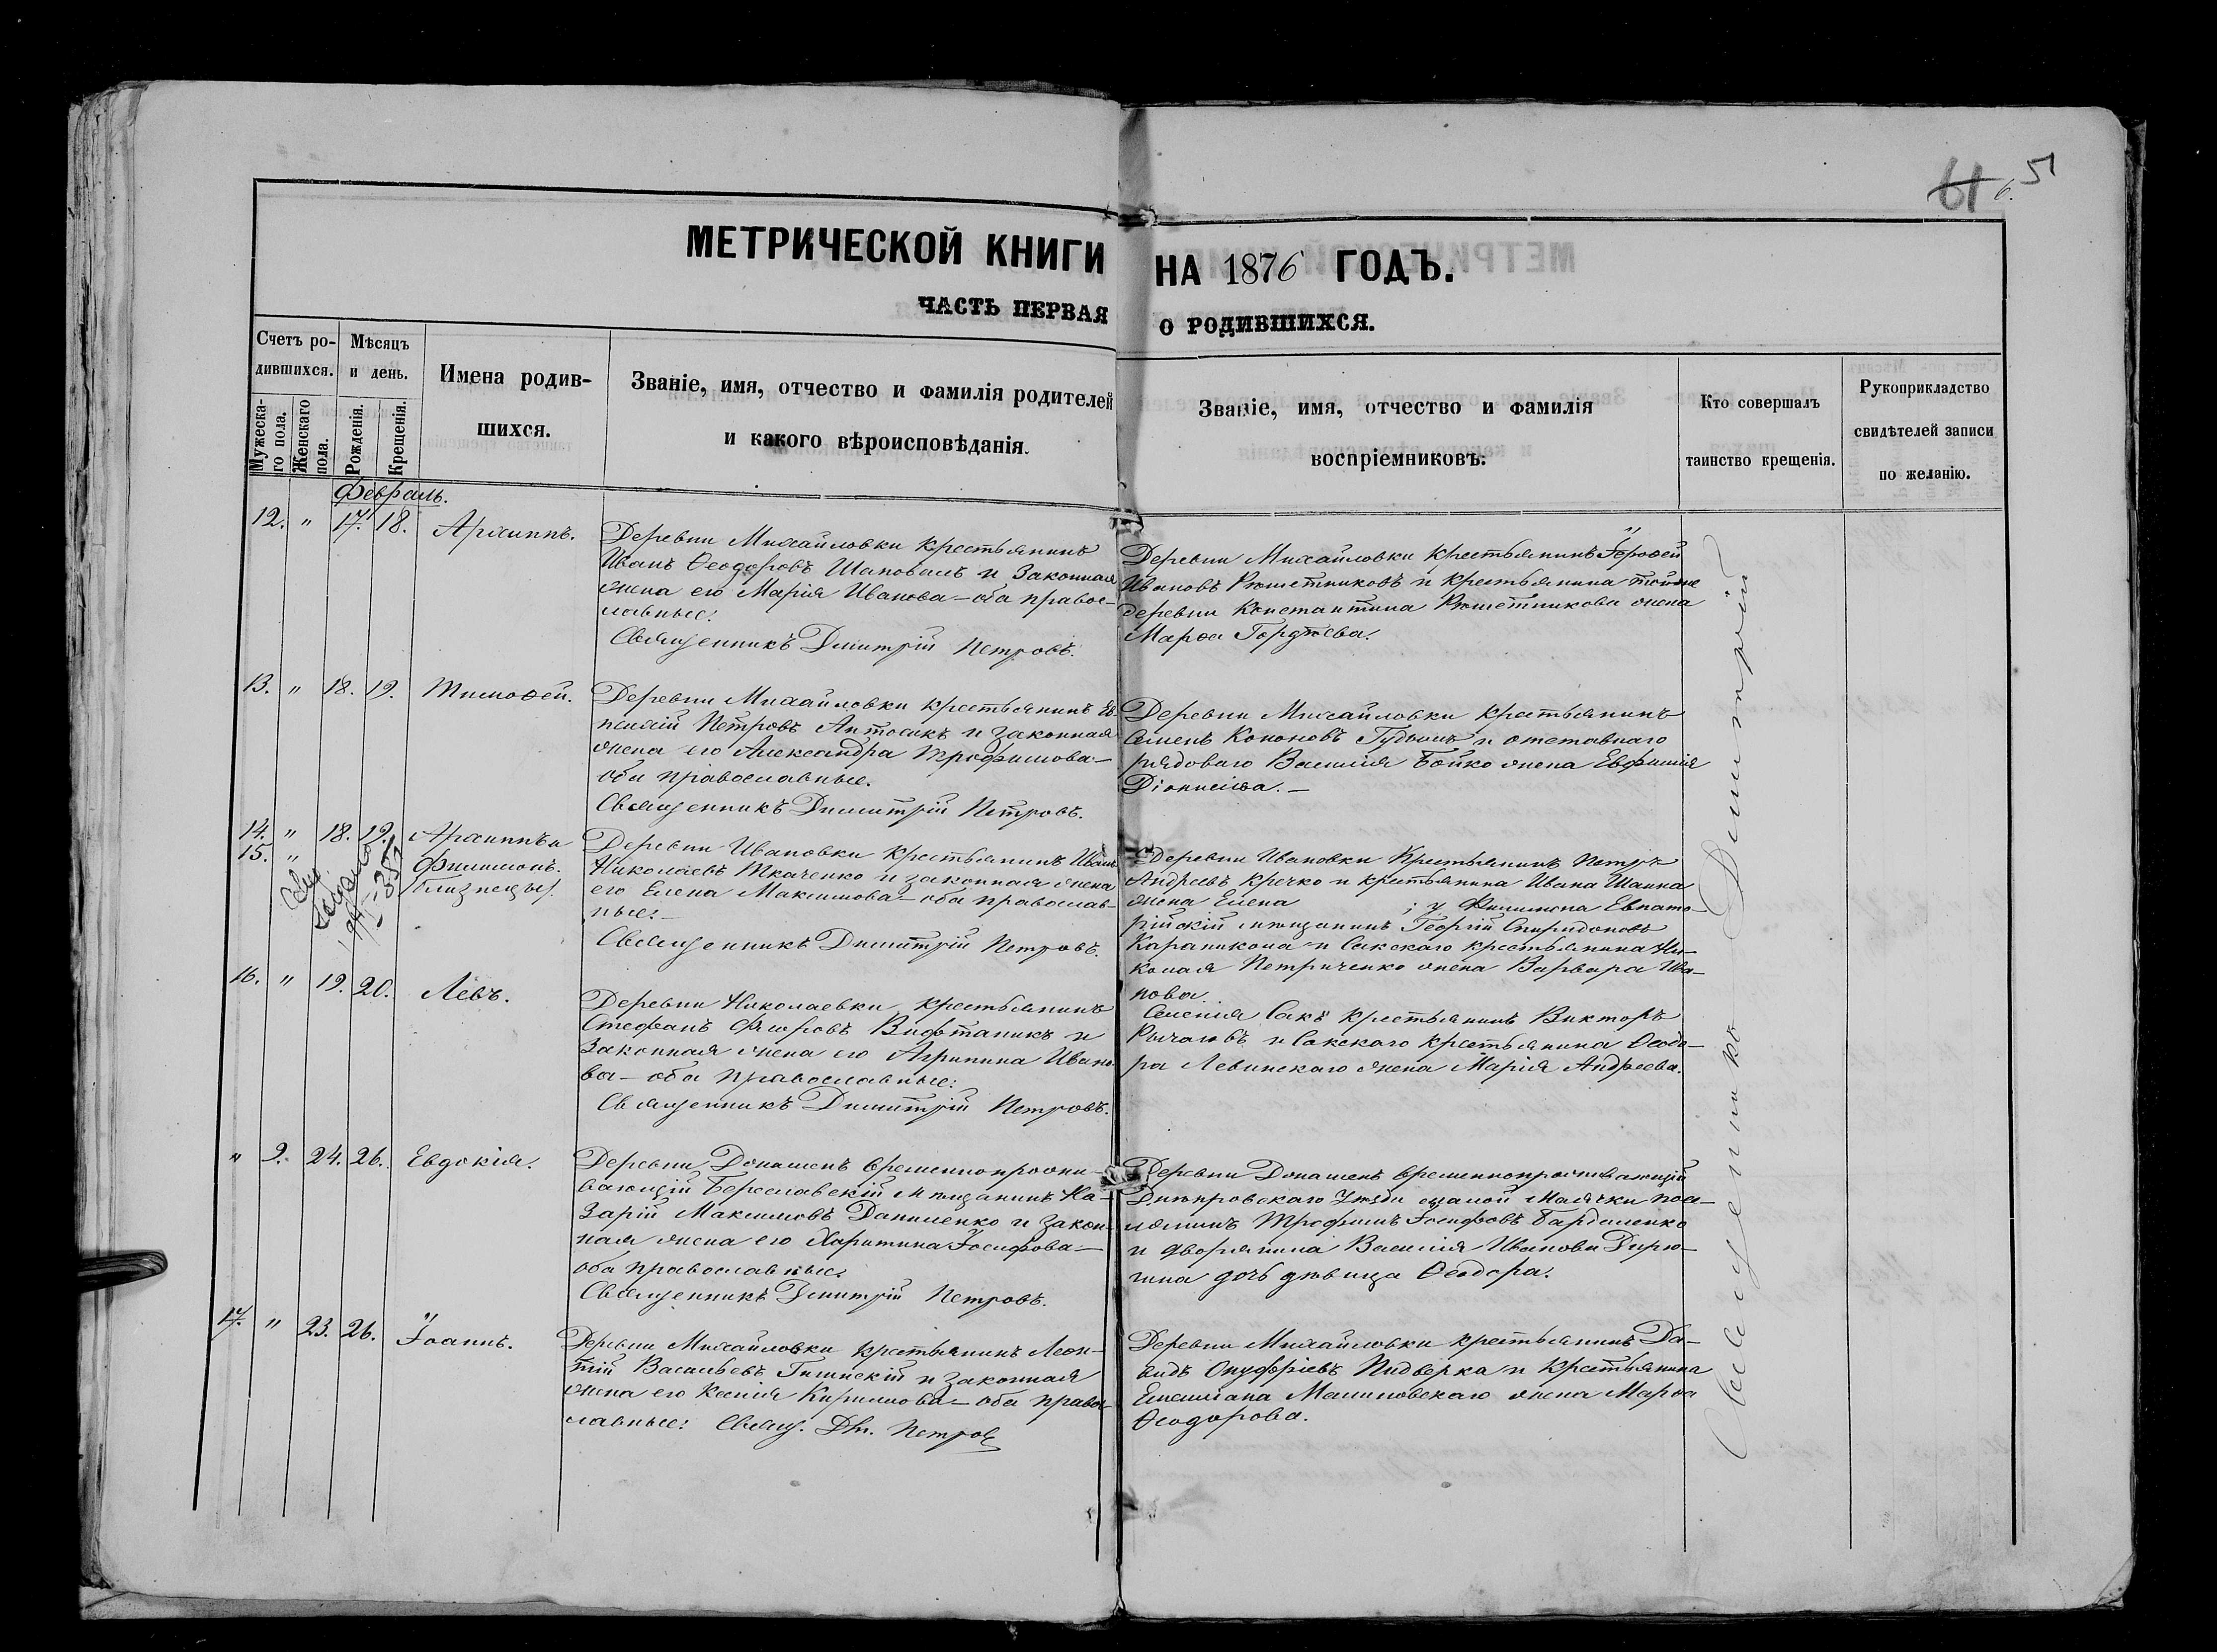 51
61 6.
МЕТРИЧЕСКОЙ КНИГИ НА 1876 ГОДЪ.
ЧАСТЬ ПЕРВАЯ О РОДИВШИХСЯ.
Счетъ ро-
дившихся.
Мужеска-
го пола.
Женскаго
пола.
Мѣсяцъ
и день.
Рожденія.
Крещенія.
Имена родив-
шихся.
Званіе, имя, отчество и фамилія родителей
и какого вѣроисповѣданія.
Званіе, имя, отчество и фамилія
воспріемниковъ.
Кто совершалъ
таинство крещенія.
Рукоприкладство
свидѣтелей записи
по желанію.
Февраль.
12. " 17. 18. Архиппъ.
Деревни Михайловки крестьянинъ
Иванъ Ѳеодоровъ Шаповалъ и законная
жена его Марія Иванова – оба правос-
лавные.
Священникъ Димитрій Петровъ.
Деревни Михайловки крестьянинъ Іероѳей
Ивановъ Рѣшетниковъ и крестьянина тойже
деревни Константина Рѣшетникова жена
Марѳа Гордѣева.
13. " 18. 19. Тимоѳей.
Деревни Михайловки крестьянинъ Ев-
Петровъ и законная
жена его Александра Трофимова –
оба православные.
Священникъ Димитрій Петровъ.
Деревни Михайловки крестьянинъ
Семенъ Кононовъ и отставнаго
рядоваго Василія Бойко жена Евфимія
Діонисіева. –
14. " 18. 19. Архиппъ и
15. " Филимонъ.
близнецы.
Деревни Ивановки крестьянинъ Иванъ
Николаевъ Ткаченко и законная жена
его Елена Максимова – оба православ-
ные. –
Священникъ Димитрій Петровъ.
Деревни Ивановки крестьянинъ Петръ
Андреевъ Кречко и крестьянина Ивана
жена Елена ; у Филимона Евпато-
рійскій мѣщанинъ Георгій Спиридоновъ
и Сакскаго крестьянина Ни-
колая Петриченко жена Варвара Ива-
нова.
16. " 19. 20. Левъ.
Деревни Николаевки крестьянинъ
Стефанъ и
законная жена его Агрипина Ивано-
ва – оба православные.
Священникъ Димитрій Петровъ.
Селенія Сакъ крестьянинъ Викторъ
Рычаговъ и Сакскаго крестьянина Ѳеодо-
ра Левинскаго жена Марія Андреева.
" 9. 24. 26. Евдокія.
Деревни временнопрожи-
вающій Бериславскій мѣщанинъ На-
зарій Максимовъ Даниленко и закон-
ная жена его Харитина Іосифова –
оба православные.
Священникъ Димитрій Петровъ.
Деревни временнопроживающій
Днѣпровскаго Уѣзда Маячки посе-
лянинъ Трофимъ Іосифовъ
и дворянина Василія Иванова Дирю-
гина дочь дѣвица Ѳеодора.
17. " 23. 26. Іоаннъ.
Деревни Михайловки крестьянинъ Леон-
тій Васильевъ и законная
жена его Ксенія Кириллова – оба правос-
лавные. Свящ. Дм. Петровъ
Деревни Михайловки крестьянинъ Да-
видъ Онуфріевъ Пидверка и крестьянина
Емеліана Малиновскаго жена Марѳа
Ѳеодорова.
Священникъ Димитрій